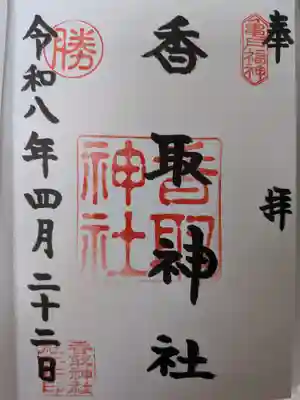 奉拝
亀戸福神
香取神社
香取神社
令和八年四月二十二日
勝